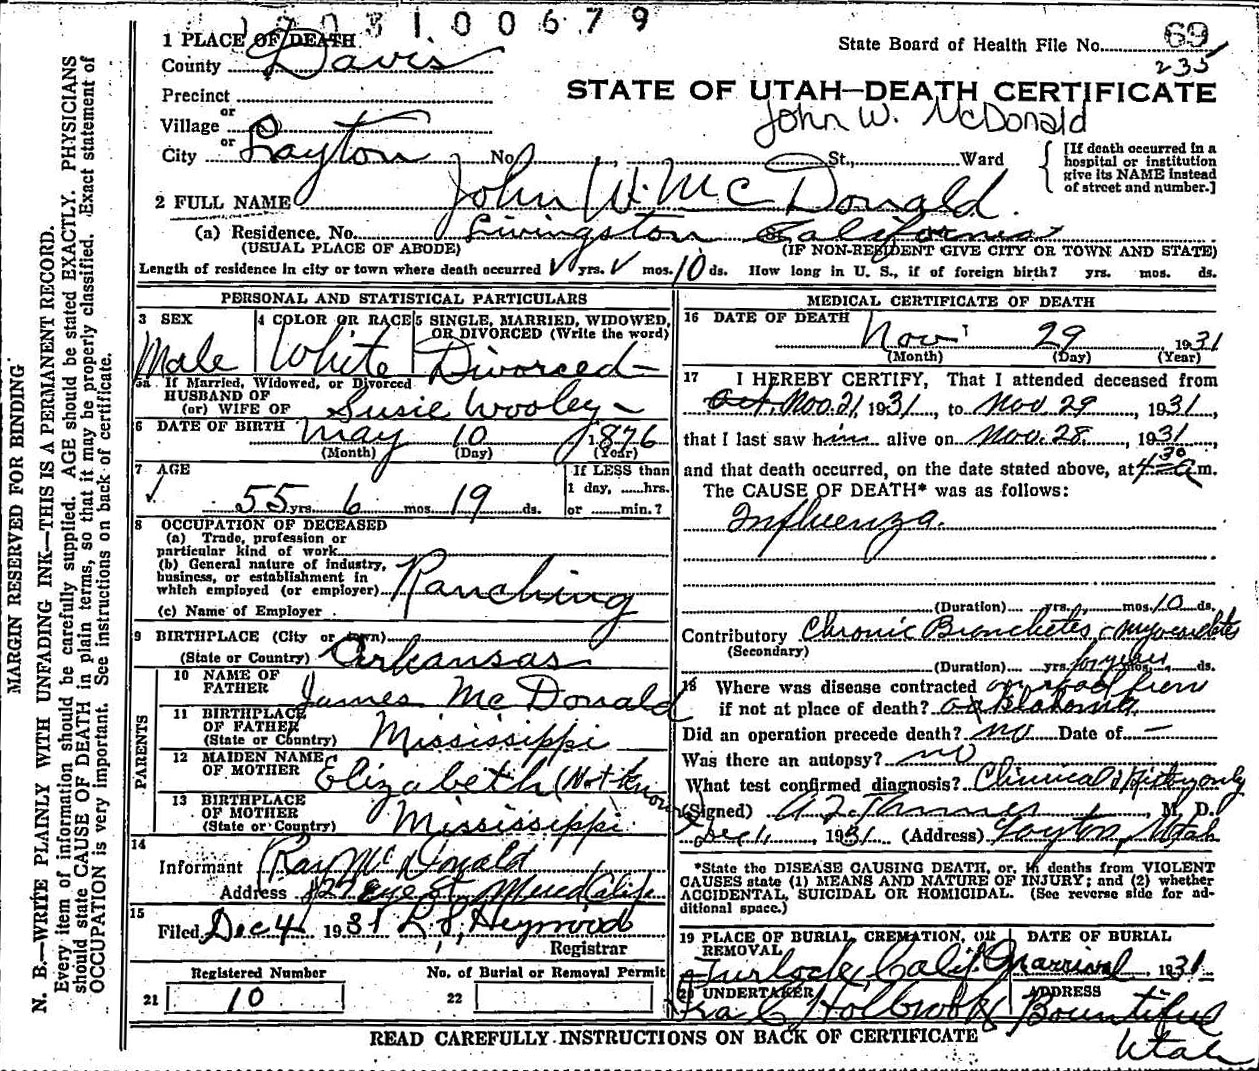 1703100679
1 PLACE OF DEATH
State Board of Health File No. 69
235
County Davis
STATE OF UTAH—DEATH CERTIFICATE
Precinct
or
John W. McDonald
Village
or
City Layton No. St., Ward
[If death occurred in a hospital or institution give its NAME instead of street and number.]
2 FULL NAME John W. McDonald.
(a) Residence. No. Livingston California
(USUAL PLACE OF ABODE) (IF NON-RESIDENT GIVE CITY OR TOWN AND STATE)
Length of residence in city or town where death occurred yrs. mos. 10 ds. How long in U. S., if of foreign birth? yrs. mos. ds.
PERSONAL AND STATISTICAL PARTICULARS
3 SEX
Male
4 COLOR OR RACE
White
5 SINGLE, MARRIED, WIDOWED, OR DIVORCED (Write the word)
Divorced
5a If Married, Widowed, or Divorced
HUSBAND OF
(or) WIFE OF Susie Wooley
6 DATE OF BIRTH May 10 1876
(Month) (Day) (Year)
7 AGE
55 yrs. 6 mos. 19 ds.
If LESS than
1 day, hrs.
or min.?
8 OCCUPATION OF DECEASED
(a) Trade, profession or
particular kind of work
(b) General nature of industry,
business, or establishment in
which employed (or employer) Ranching
(c) Name of Employer
9 BIRTHPLACE (City or town)
(State or Country) Arkansas
PARENTS
10 NAME OF
FATHER James McDonald
11 BIRTHPLACE
OF FATHER
(State or Country) Mississippi
12 MAIDEN NAME
OF MOTHER Elizabeth (Not Known)
13 BIRTHPLACE
OF MOTHER
(State or Country) Mississippi
14
Informant Ray McDonald
Address St. Merced Calif.
15
Filed Dec 4 1931 L. S. Heywood
Registrar
Registered Number No. of Burial or Removal Permit
21 10 22
MEDICAL CERTIFICATE OF DEATH
16 DATE OF DEATH Nov 29 1931
(Month) (Day) (Year)
17 I HEREBY CERTIFY, That I attended deceased from
Nov. 21, 1931, to Nov 29, 1931,
that I last saw him alive on Nov. 28, 1931,
and that death occurred, on the date stated above, at 4 30 a m.
The CAUSE OF DEATH* was as follows:
Influenza.
(Duration) yrs. mos. 10 ds.
Contributory Chronic Bronchetes - myocardites
(Secondary)
(Duration) yrs. mos. ds.
18 Where was disease contracted
if not at place of death?
Did an operation precede death? no Date of —
Was there an autopsy? no
What test confirmed diagnosis? Clinical & History only
(Signed) M. D.
Dec 4, 1931 (Address) Layton, Utah
*State the DISEASE CAUSING DEATH, or, in deaths from VIOLENT
CAUSES state (1) MEANS AND NATURE OF INJURY; and (2) whether
ACCIDENTAL, SUICIDAL OR HOMICIDAL. (See reverse side for ad-
ditional space.)
19 PLACE OF BURIAL, CREMATION, OR
REMOVAL
Turlock, Calif.
DATE OF BURIAL
1931
20 UNDERTAKER
Ira C Holbrook
ADDRESS
Bountiful
Utah
READ CAREFULLY INSTRUCTIONS ON BACK OF CERTIFICATE
MARGIN RESERVED FOR BINDING
N. B.—WRITE PLAINLY WITH UNFADING INK—THIS IS A PERMANENT RECORD.
Every item of information should be carefully supplied. AGE should be stated EXACTLY. PHYSICIANS
should state CAUSE OF DEATH in plain terms, so that it may be properly classified. Exact statement of
OCCUPATION is very important. See instructions on back of certificate.